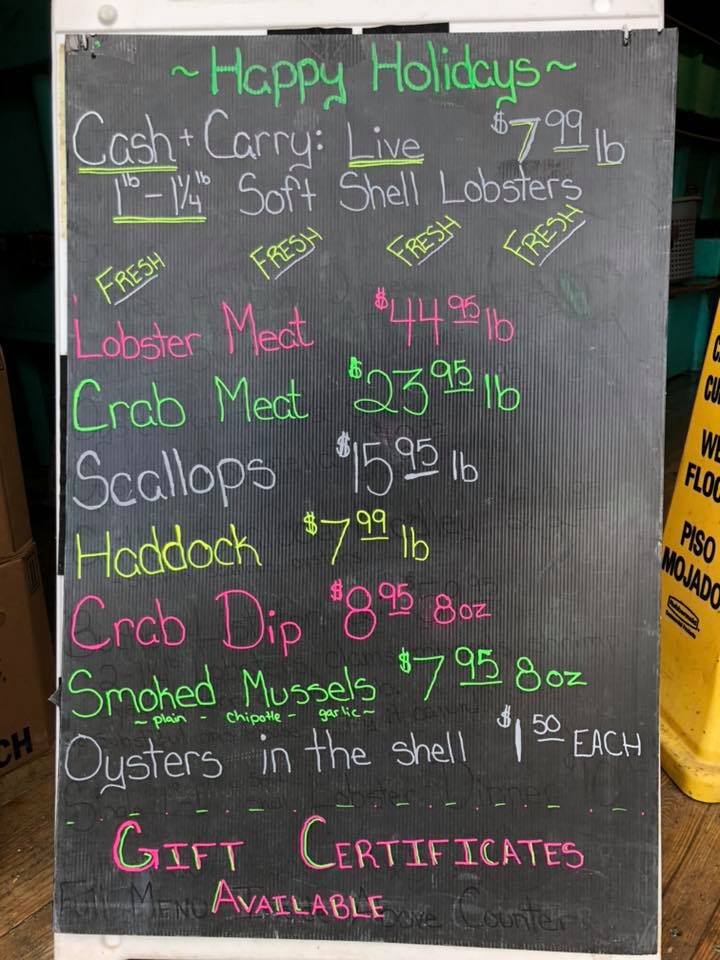 ~Happy Holidays~
Cash + Carry: Live $7.99 lb
1lb - 1¼lb Soft Shell Lobsters
FRESH FRESH FRESH FRESH
Lobster Meat $44.95 lb
Crab Meat $23.95 lb
Scallops $15.95 lb
Haddock $7.99 lb
Crab Dip $8.95 8oz
Smoked Mussels $7.95 8oz
~plain - chipotle - garlic~
Oysters in the shell $1.50 EACH
GIFT CERTIFICATES
AVAILABLE
Full Menu Above Counter
PISO
MOJADO
Rubbermaid
CH